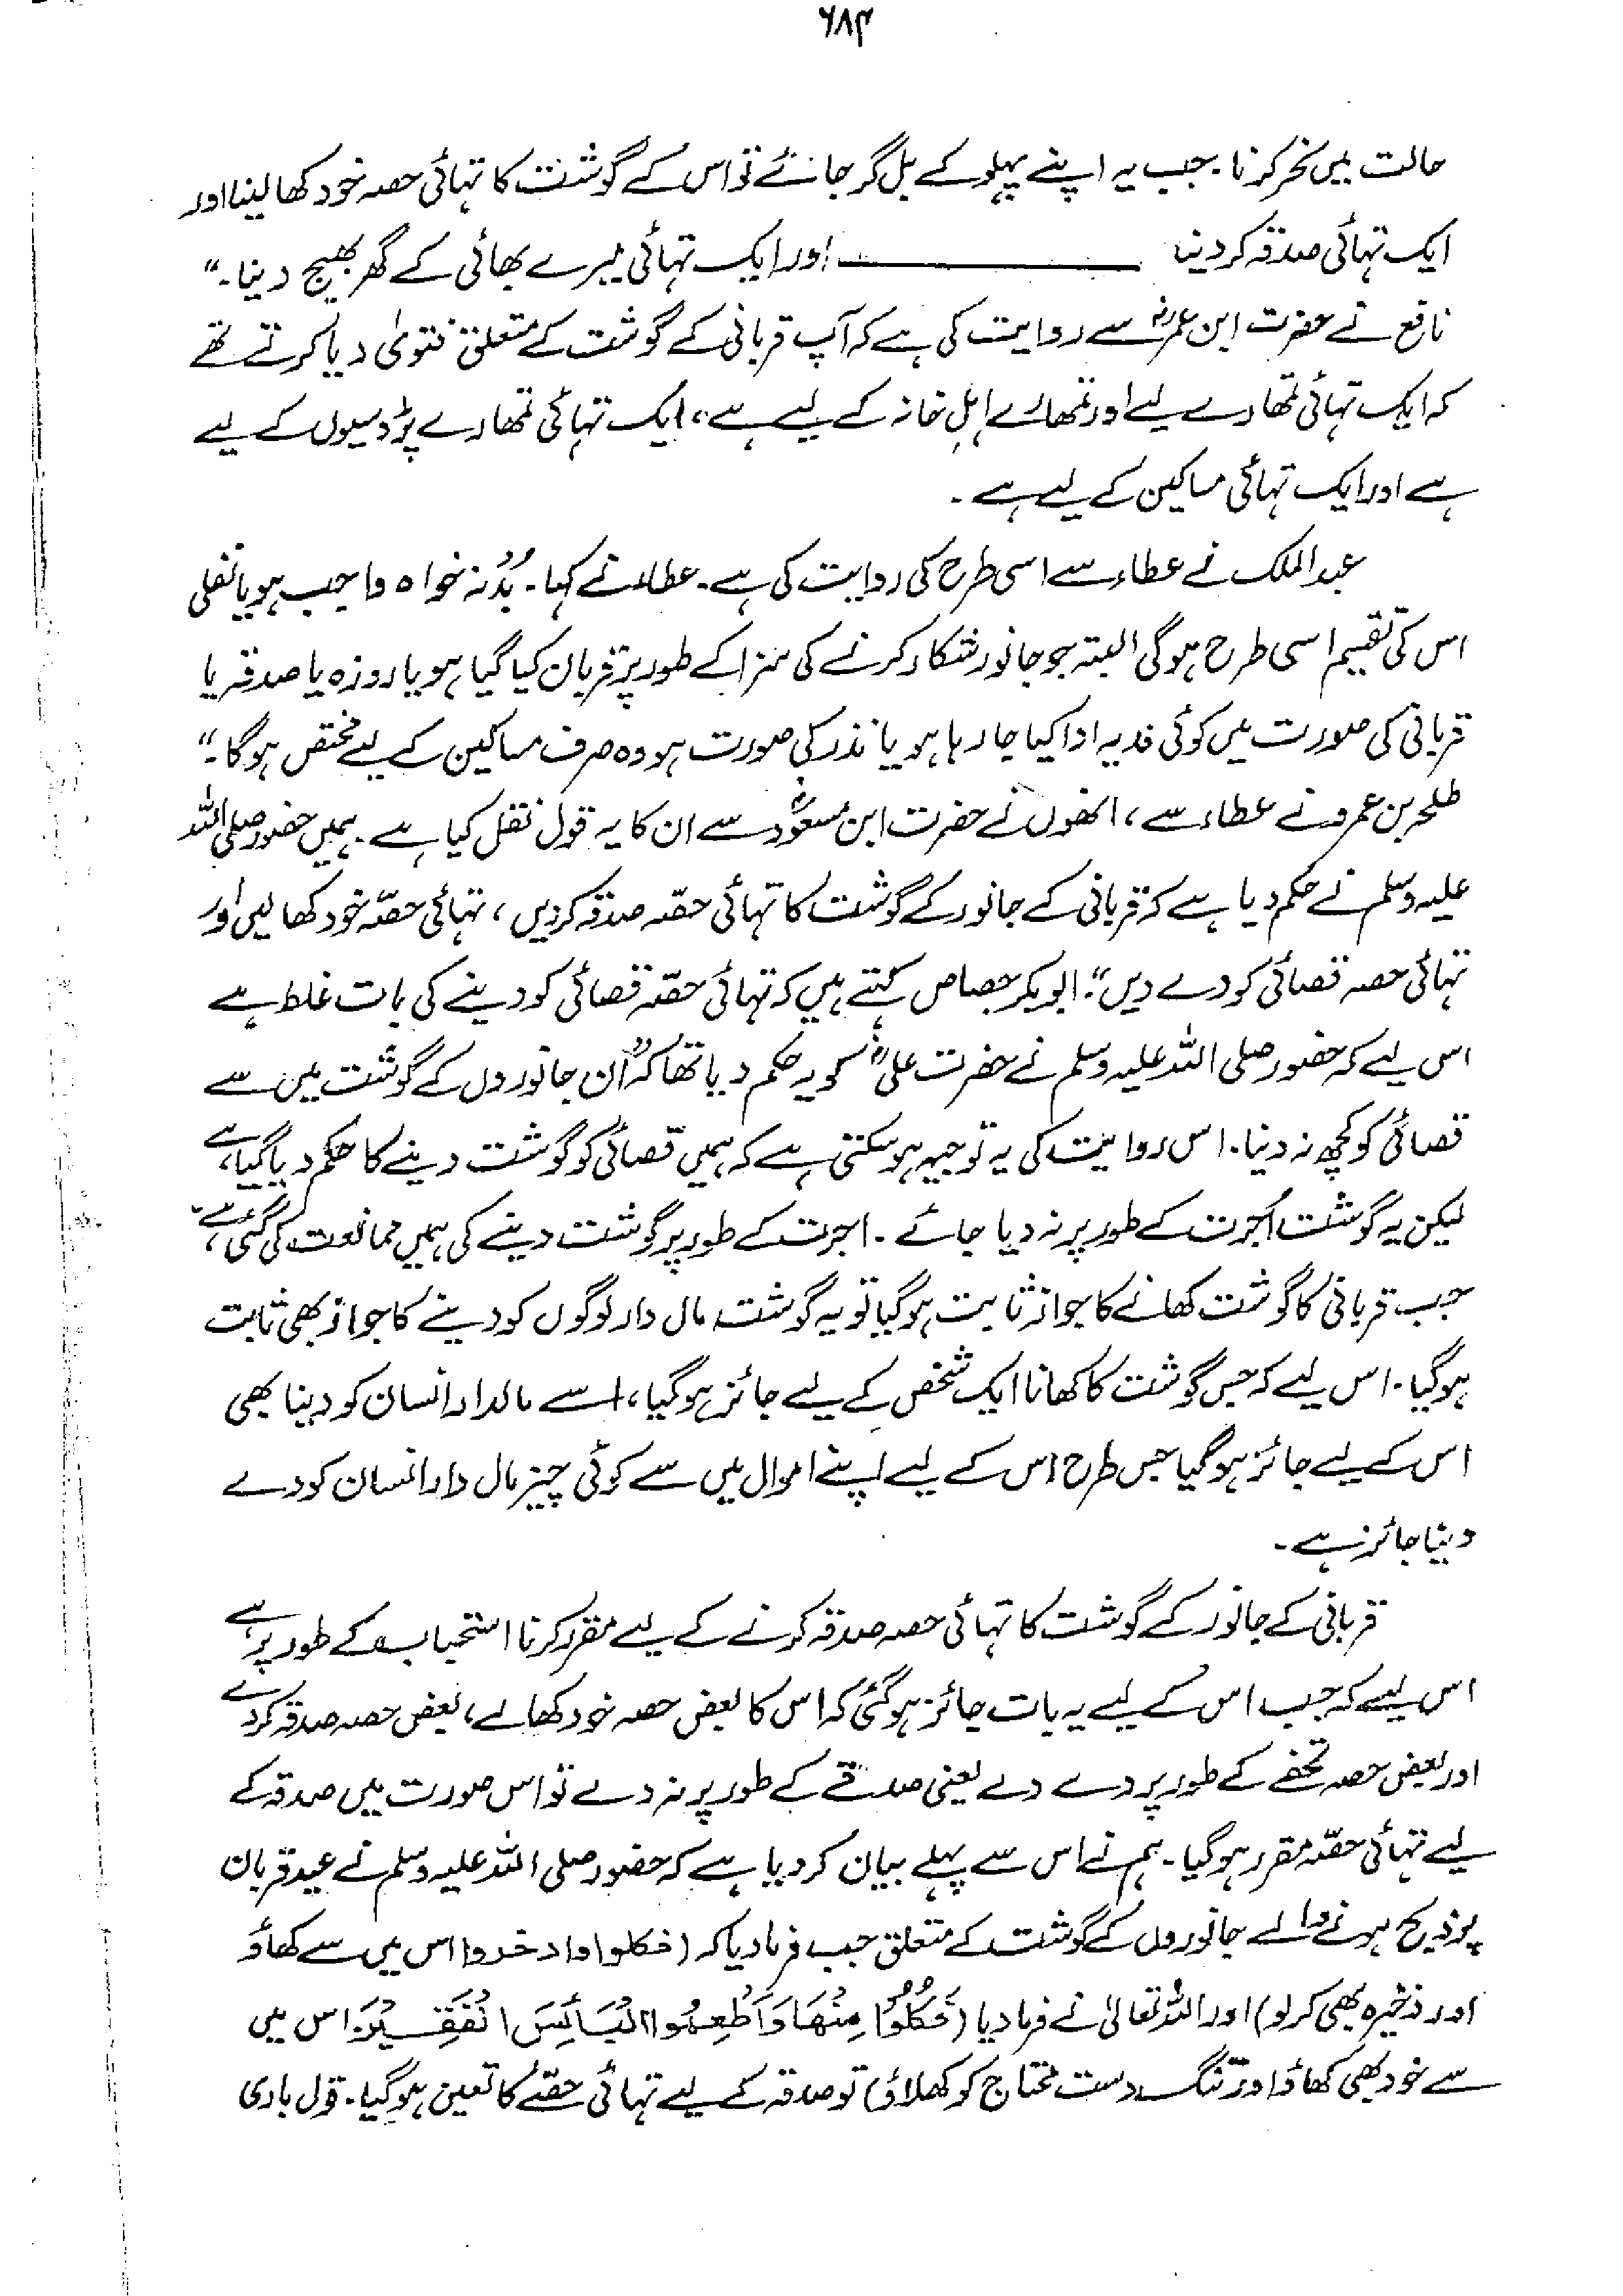 ۶۸۴
حالت میں نحر کرنا۔ جب یہ اپنے پہلو کے بل گر جائے تو اس کے گوشت کا تہائی حصہ خود کھا لینا اور
ایک تہائی صدقہ کر دینا ــــــــــــــــ اور ایک تہائی میرے بھائی کے گھر بھیج دینا۔"
نافع نے حضرت ابن عمرؓ سے روایت کی ہے کہ آپ قربانی کے گوشت کے متعلق فتویٰ دیا کرتے تھے
کہ ایک تہائی تمھارے لیے اور تمھارے اہلِ خانہ کے لیے ہے، ایک تہائی تمھارے پڑوسیوں کے لیے
ہے اور ایک تہائی مساکین کے لیے ہے۔
عبدالملک نے عطاء سے اسی طرح کی روایت کی ہے۔ عطاء نے کہا۔ بُدُنہ خواہ واجب ہو یا نفلی
اس کی تقسیم اسی طرح ہوگی البتہ جو جانور شکار کرنے کی سزا کے طور پر قربان کیا گیا ہو یا روزہ یا صدقہ یا
قربانی کی صورت میں کوئی فدیہ ادا کیا جا رہا ہو یا نذر کی صورت ہو وہ صرف مساکین کے لیے مختص ہوگا۔"
طلحہ بن عمرو نے عطاء سے، انھوں نے حضرت ابن مسعودؓ سے ان کا یہ قول نقل کیا ہے۔ ہمیں حضور صلی اللہ
علیہ وسلم نے حکم دیا ہے کہ قربانی کے جانور کے گوشت کا تہائی حصّہ صدقہ کردیں، تہائی حصّہ خود کھالیں اور
تہائی حصہ قصائی کو دے دیں"۔ ابوبکر جصاص کہتے ہیں کہ تہائی حصّہ قصائی کو دینے کی بات غلط ہے
اس لیے کہ حضور صلی اللہ علیہ وسلم نے حضرت علیؓ کو یہ حکم دیا تھا کہ "ان جانوروں کے گوشت میں سے
قصائی کو کچھ نہ دینا۔ اس روایت کی یہ توجیہ ہو سکتی ہے کہ ہمیں قصائی کو گوشت دینے کا حکم دیا گیا ہے،
لیکن یہ گوشت اُجرت کے طور پر نہ دیا جائے۔ اجرت کے طور پر گوشت دینے کی ہمیں ممانعت کی گئی ہے۔
جب قربانی کا گوشت کھانے کا جواز ثابت ہوگیا تو یہ گوشت مال دار لوگوں کو دینے کا جواز بھی ثابت
ہوگیا۔ اس لیے کہ جس گوشت کا کھانا ایک شخص کے لیے جائز ہوگیا، اسے مالدار انسان کو دینا بھی
اس کے لیے جائز ہوگیا جس طرح اس کے لیے اپنے اموال میں سے کوئی چیز مال دار انسان کو دے
دینا جائز ہے۔
قربانی کے جانور کے گوشت کا تہائی حصہ صدقہ کرنے کے لیے مقرر کرنا استحباب کے طور پر ہے
اس لیے کہ جب اس کے لیے یہ بات جائز ہوگئی کہ اس کا بعض حصہ خود کھالے، بعض حصہ صدقہ کردے
اور بعض حصہ تحفے کے طور پر دے دے یعنی صدقے کے طور پر نہ دے تو اس صورت میں صدقہ کے
لیے تہائی حصّہ مقرر ہوگیا۔ ہم نے اس سے پہلے بیان کر دیا ہے کہ حضور صلی اللہ علیہ وسلم نے عید قربان
پر ذبح ہونے والے جانوروں کے گوشت کے متعلق جب فرمادیا کہ (فکلوا وادخروا اس میں سے کھاؤ
اور ذخیرہ بھی کرلو) اور اللہ تعالیٰ نے فرمادیا (فَكُلُوْا مِنْهَا وَاَطْعِمُوا الْبَائِسَ الْفَقِيْرَ۔ اس میں
سے خود بھی کھاؤ اور تنگ دست محتاج کو کھلاؤ) تو صدقہ کے لیے تہائی حصّے کا تعین ہوگیا۔ قول باری